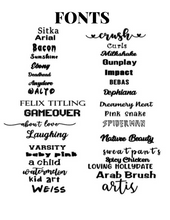 FONTS
Sitka
Arial
Bacon
Sunshine
Ebony
Deadhead
Angelero
WALTO
FELIX TITLING
GAMEOVER
about love
Laughing
VARSITY
baby pink
a child
watermelon
kid art
WEISS
crush
Curls
Milkshake
Gunplay
Impact
BEBAS
Delphiana
Dreaming Kent
Pink snake
SPIDERMAN
Nature Beauty
sweatpants
Spicy Chicken
LOVING HOLLYDATE
Arab Brush
artis